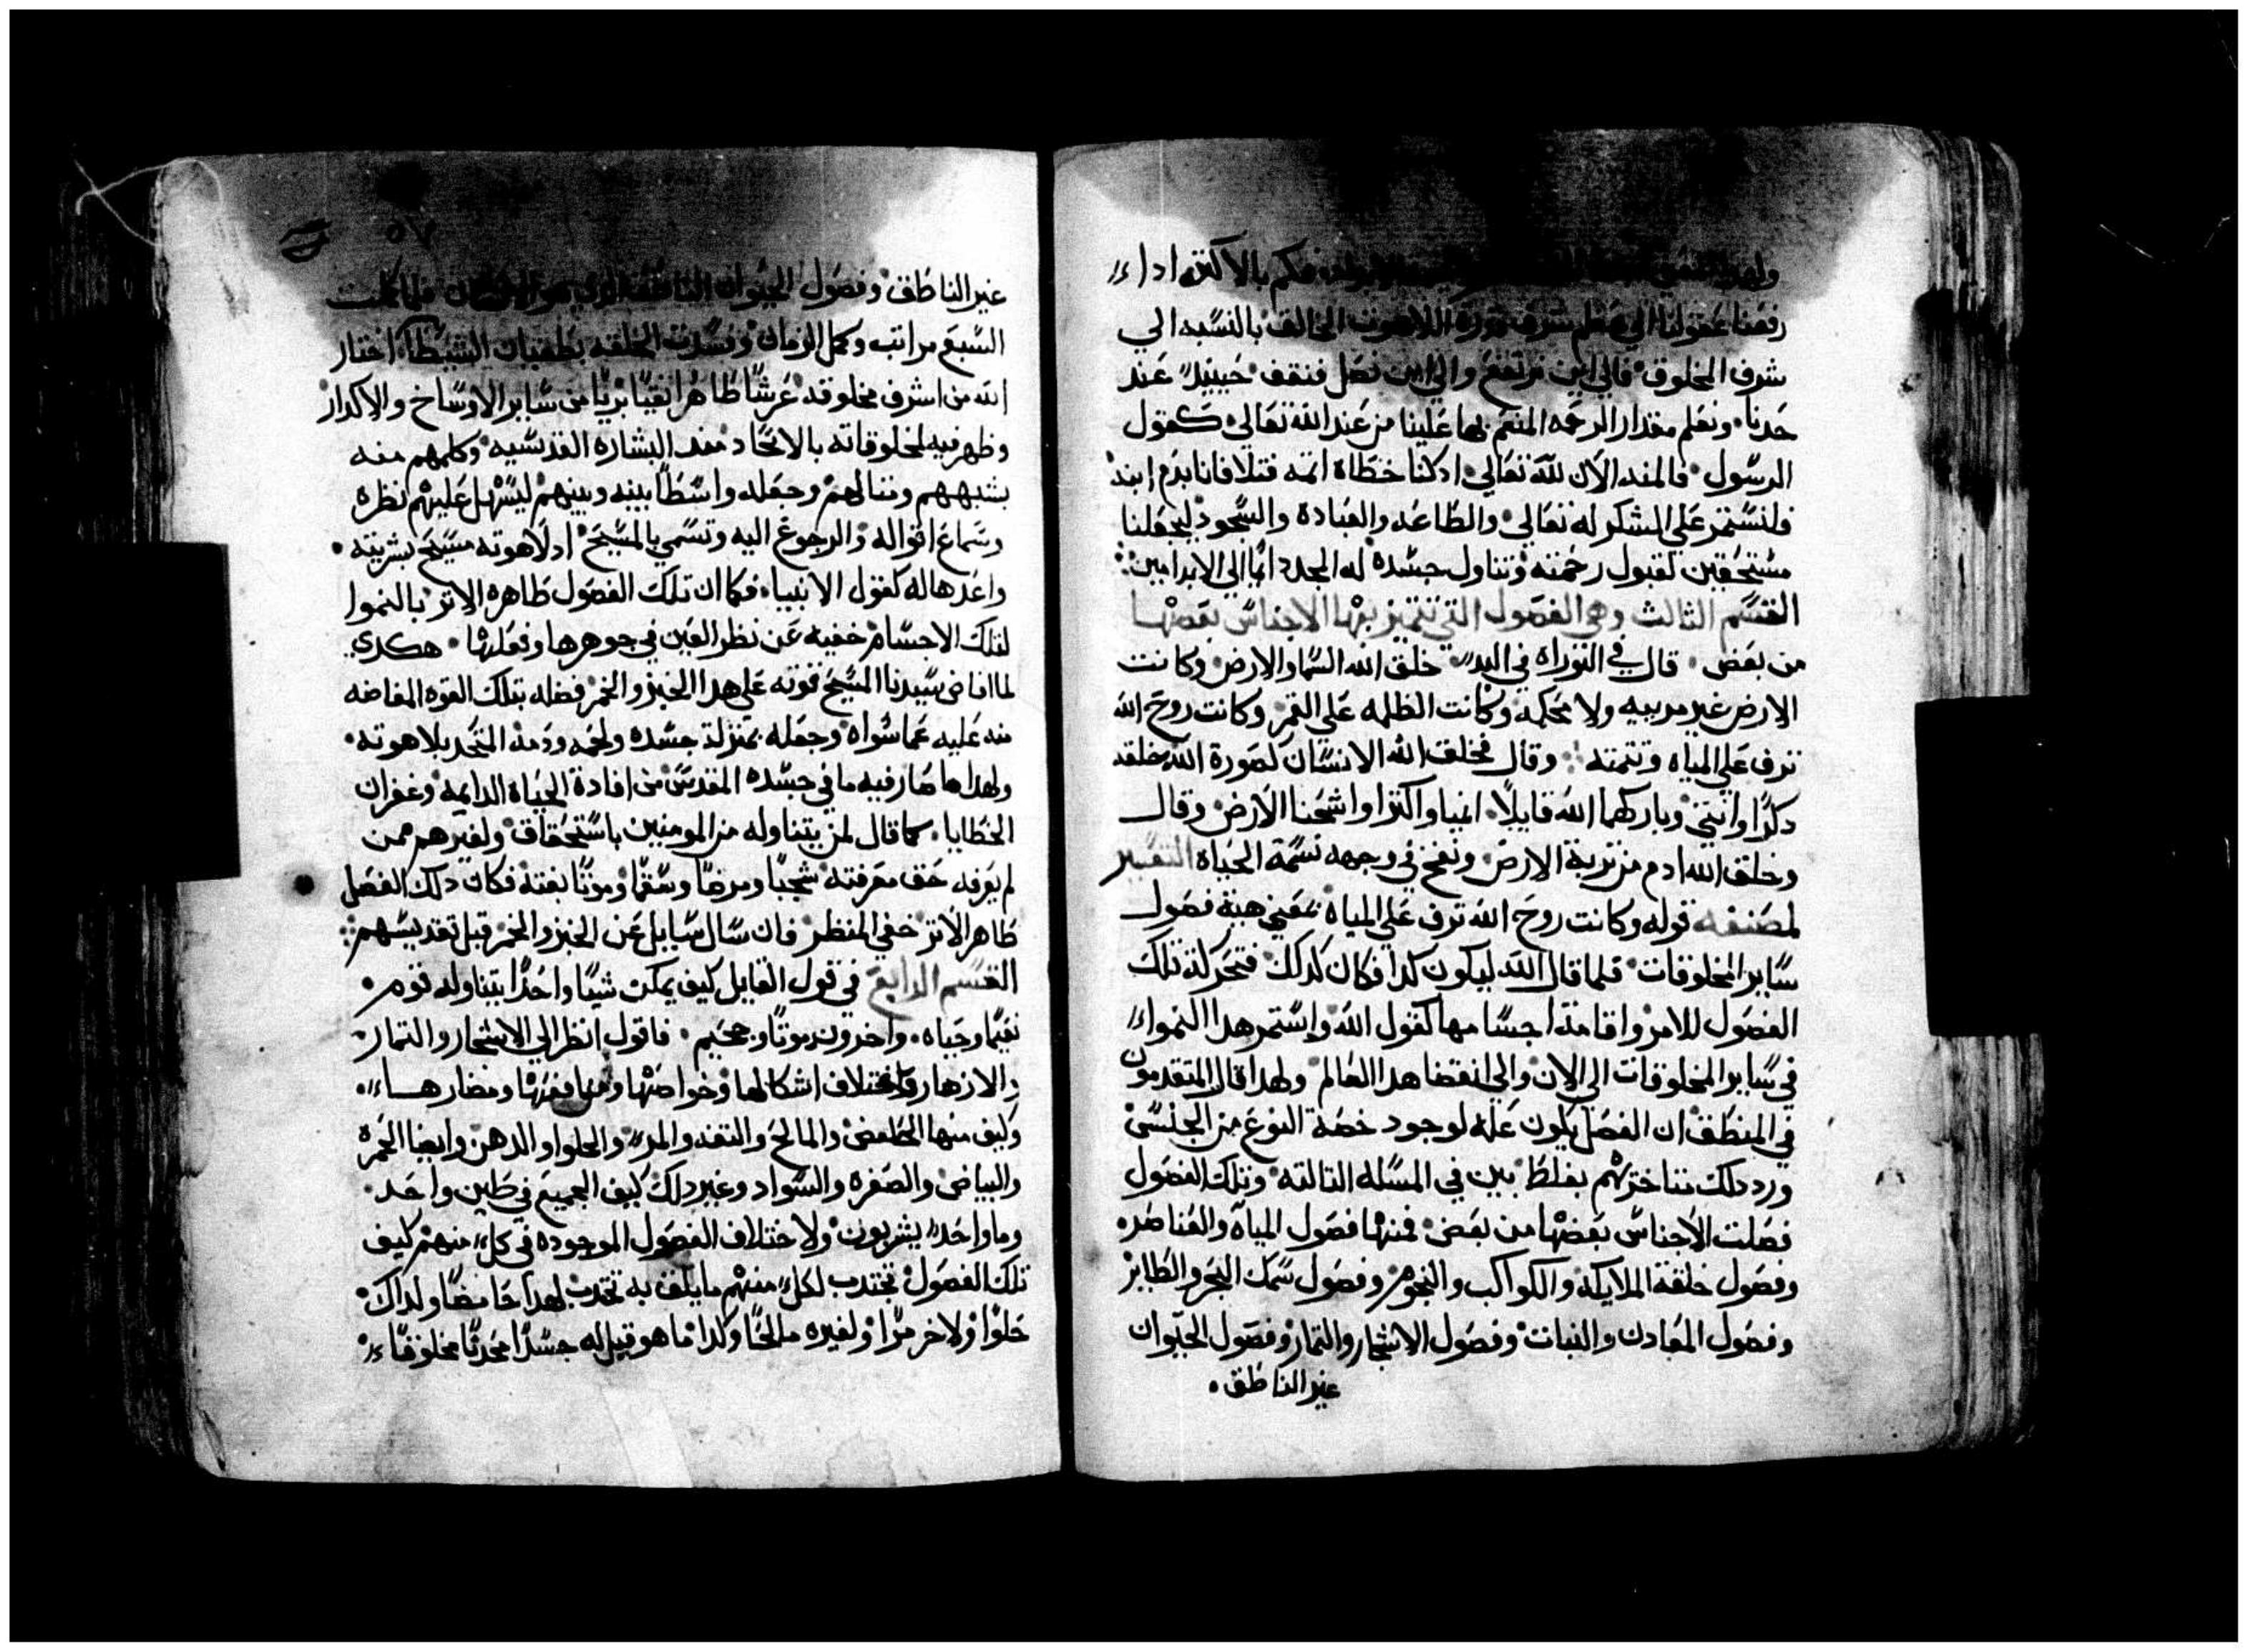 فكم بالاكثر ادا
رفعنا عقولنا الي عظم شرف اللاهوت الخالق بالنسبه الي
شرف المخلوق فالي اين نرتفع والي اين نصل فنقف حينيد عند
حدنا ونعلم مقدار الرحمه المنعم بها علينا من عند الله تعالي كقول
الرسول فالمنه الان لله تعالي ادكنا خطاة اتمه قتلا فانا بدم ابنه
فلنستمر علي الشكر له تعالي والطاعه والعبادة والسجود ليجعلنا
مستحقين لقبول رحمته وتناول جسده له المجد دايما الي الابد امين
القسم الثالث وهي الفصول التي تتميز بها الاجناس بعضها
من بعض قال في التوراه في البدء خلق الله السما والارض وكانت
الارض غير مرييه ولا محكمة وكانت الظلمه علي القمر وكانت روح الله
ترف علي المياه وتتمته وقال فخلق الله الانسان لصورة الله خلقه
دكرا وانتي وباركهما الله قايلا انميا واكترا واشحنا الارض وقال
وخلق الله ادم من تربة الارض ونفخ في وجهه نسمة الحياة التفسير
لمصنفه قوله وكانت روح الله ترف علي المياه يعني هبة فصول
ساير المخلوقات فلما قال الله ليكون كدا فكان كدلك فتحركة تلك
الفصول للامر واقامة اجسامها كقول الله واستمر هدا النموا
في ساير المخلوقات الي الان والي انقضا هدا العالم ولهدا قال المتقدمون
في المنطق ان الفصل يكون عله لوجود حصة النوع من الجنس
ورد دلك متاخريهم بغلط بين في المسله التالته وتلك الفصول
فصلت الاجناس بعضها من بعض فمنها فصول المياه والعناصر
وفصول خلقة الملايكة والكواكب والنجوم وفصول سمك البحر والطاير
وفصول المعادن والنبات وفصول الاشجار والتمار وفصول الحيوان
غير الناطق
٥٧
غير الناطق وفصول الحيوان الناطق الدي هو الانسان فلما كملت
السبع مراتب وكمل الزمان وفسدت الخلقه بطغيان الشيطان اختار
الله من اشرف مخلوقه عرشا طاهرا نقيا بريا من ساير الاوساخ والاكدار
وظهر فيه لمخلوقاته بالاتحاد منذ البشاره القدسيه وكلمهم منه
بشبههم ومتالهم وجعله واسطا بينه وبينهم ليسهل عليهم نظره
وسماع اقواله والرجوع اليه وتسمي بالمسيح اد لاهوته مسيح بشريته
واعدها له كقول الانبيا فكما ان تلك الفصول ظاهره الاتر بالنموا
لتلك الاجسام خفيه عن نظر العين في جوهرها وفعلها هكدي
لما افاض سيدنا المسيح قوته علي هدا الخبز والخمر فضله بتلك القوه الفاضه
منه عليه عما سواه وجعله بمنزلة جسده ولحمه ودمه المتحد بلاهوته
ولهدا صار فيه ما في جسده المقدس من افادة الحياة الدايمه وغفران
الخطايا كما قال لمن يتناوله من المومنين باستحقاق ولغيرهم ممن
لم يعرفه حق معرفته شجبا ومرضا وسقما وموتا بغتة فكان دلك الفصل
ظاهر الاتر خفي المنظر فان سال سايل عن الخبز والخمر قبل تقديسهم
القسم الرابع في قول القايل كيف يمكن شيا واحدا يتناوله قوم
نعيما وحياه واخرون موتا وجحيم فاقول انظر الي الاشجار والتمار
والازهار واختلاف اشكالها وخواصها ومنافعها ومضارها
وكيف منها الحامض والمالح والتفه والمر والحلوا والدهن وايضا الحمرة
والبياض والصفره والسواد وغير دلك كيف الجميع في طين واحد
وما واحد يشربون ولاختلاف الفصول الموجوده في كل منهم كيف
تلك الفصول تجتدب لكل منهم ما يلق به تجتدب لهدا حامضا ولداك
حلوا ولاخر مرا ولغيره مالحا وكدا ما هو قيل له جسدا محدتا مخلوقا